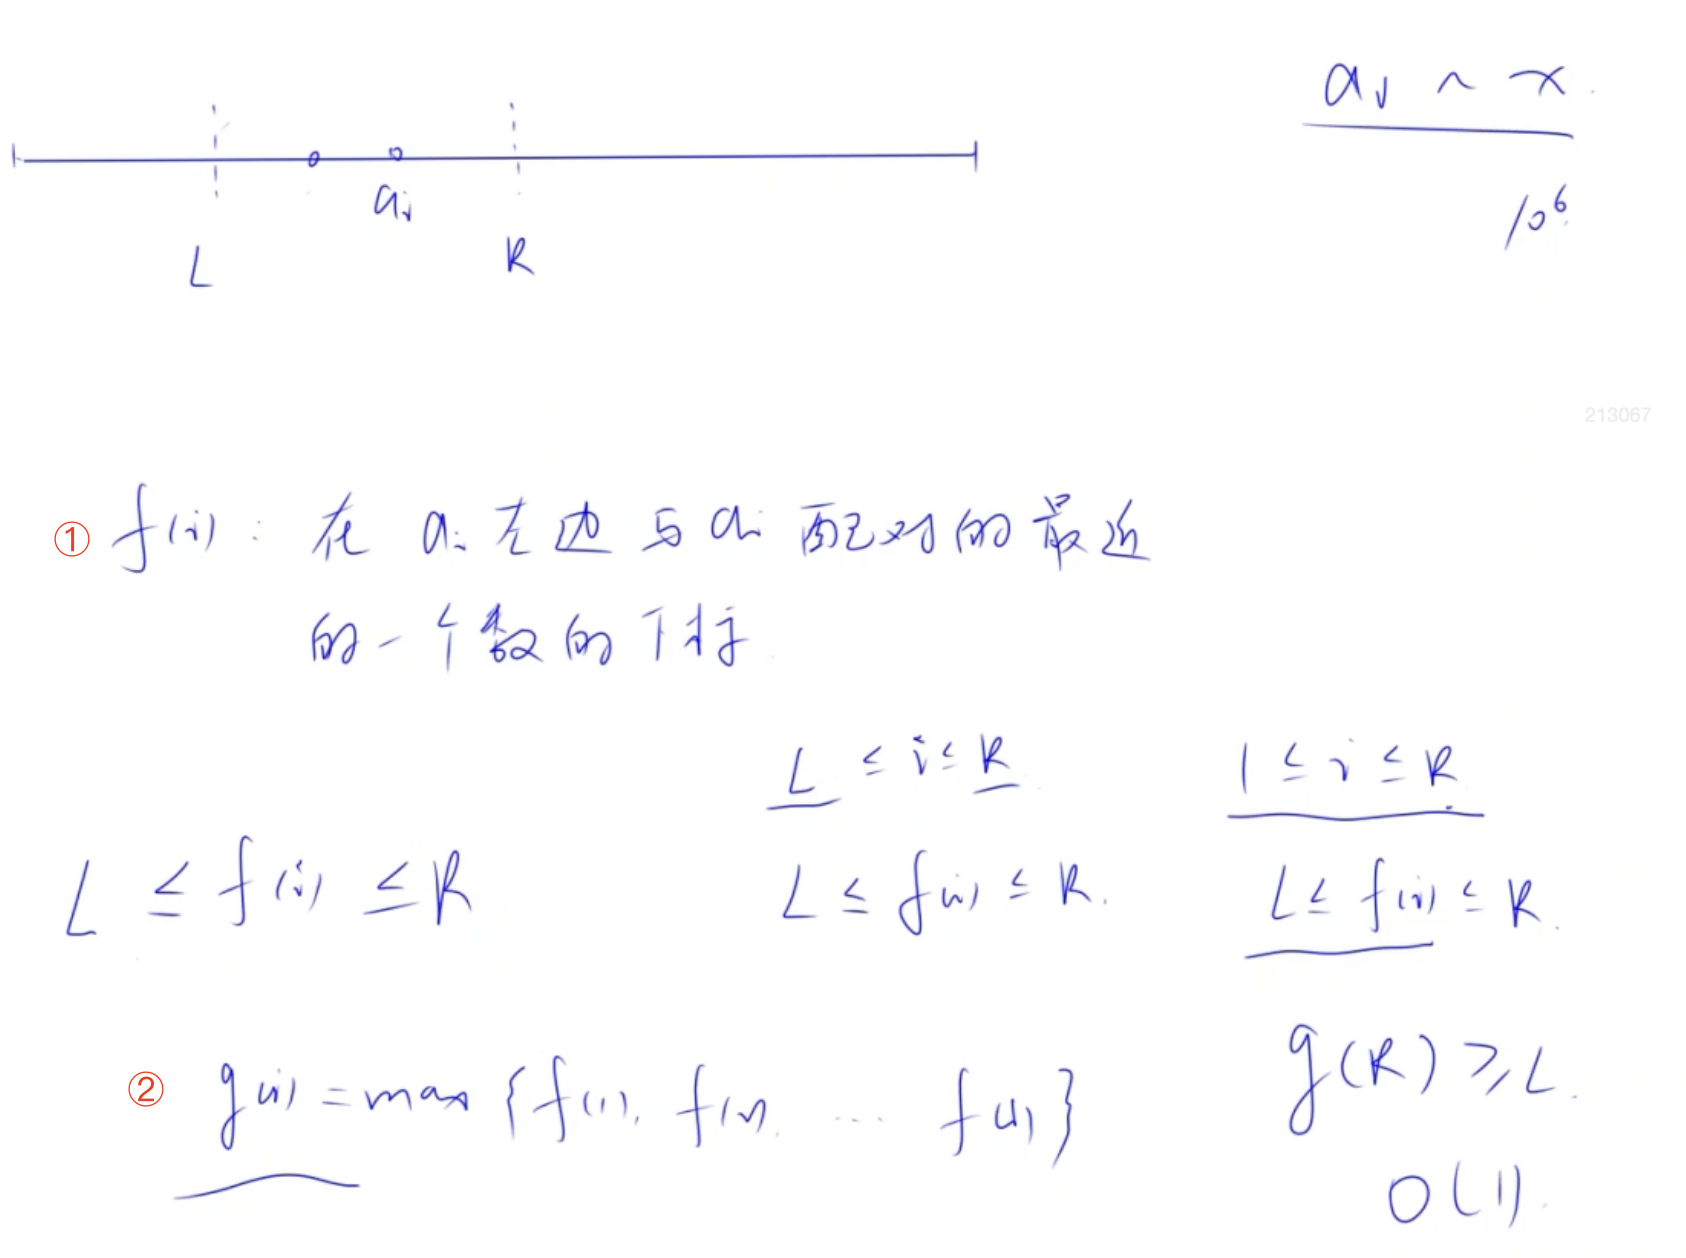 aᵢ ^ x
10⁶
aᵢ
L R
213067
① f(i): 在 aᵢ 左边与 aᵢ 配对的最近
的一个数的下标
L ≤ i ≤ R 1 ≤ i ≤ R
L ≤ f(i) ≤ R L ≤ f(i) ≤ R. L ≤ f(i) ≤ R.
② g(i) = max {f(1), f(2), ... f(i)} g(R) ≥ L.
O(1).